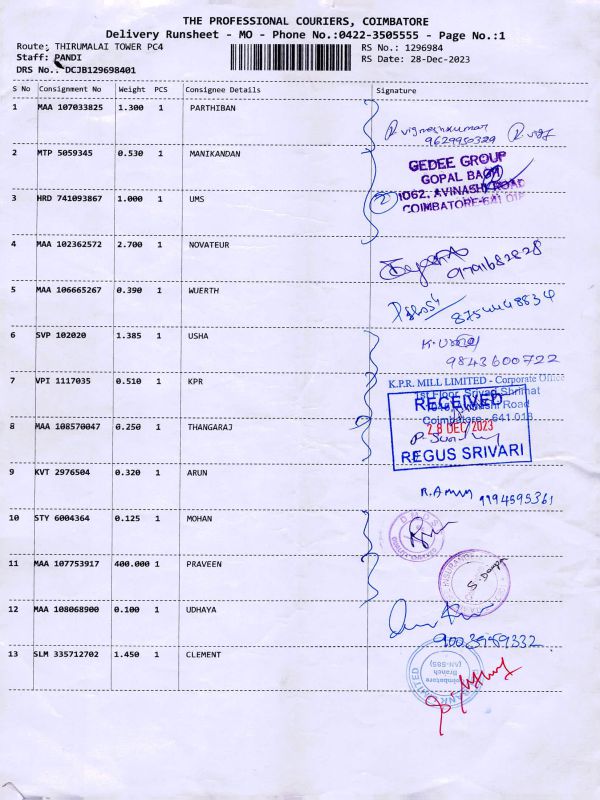 THE PROFESSIONAL COURIERS, COIMBATORE
Delivery Runsheet - MO - Phone No.:0422-3505555 - Page No.:1
Route: THIRUMALAI TOWER PC4
RS No.: 1296984
Staff: PANDI
RS Date: 28-Dec-2023
DRS No.: DCJB129698401
S No Consignment No Weight PCS Consignee Details Signature
1 MAA 107033825 1.300 1 PARTHIBAN
R. vigneshkumar
9629950329
2 MTP 5059345 0.530 1 MANIKANDAN
GEDEE GROUP
GOPAL BAGH
1062, AVINASHI ROAD
COIMBATORE-641 018
3 HRD 741093867 1.000 1 UMS
2
4 MAA 102362572 2.700 1 NOVATEUR
9791682828
5 MAA 106665267 0.390 1 WUERTH
6 SVP 102020 1.385 1 USHA
9843600722
7 VPI 1117035 0.510 1 KPR
K.P.R. MILL LIMITED - Corporate Office
1st Floor, Srivari Shrimat
1045, Avinashi Road
Coimbatore - 641 018
RECEIVED
28 DEC 2023
REGUS SRIVARI
8 MAA 108570047 0.250 1 THANGARAJ
9 KVT 2976504 0.320 1 ARUN
R. Arun 9194595361
10 STY 6004364 0.125 1 MOHAN
11 MAA 107753917 400.000 1 PRAVEEN
12 MAA 108068900 0.100 1 UDHAYA
9003989332
13 SLM 335712702 1.450 1 CLEMENT
Coimbatore
Branch
(AN-585)